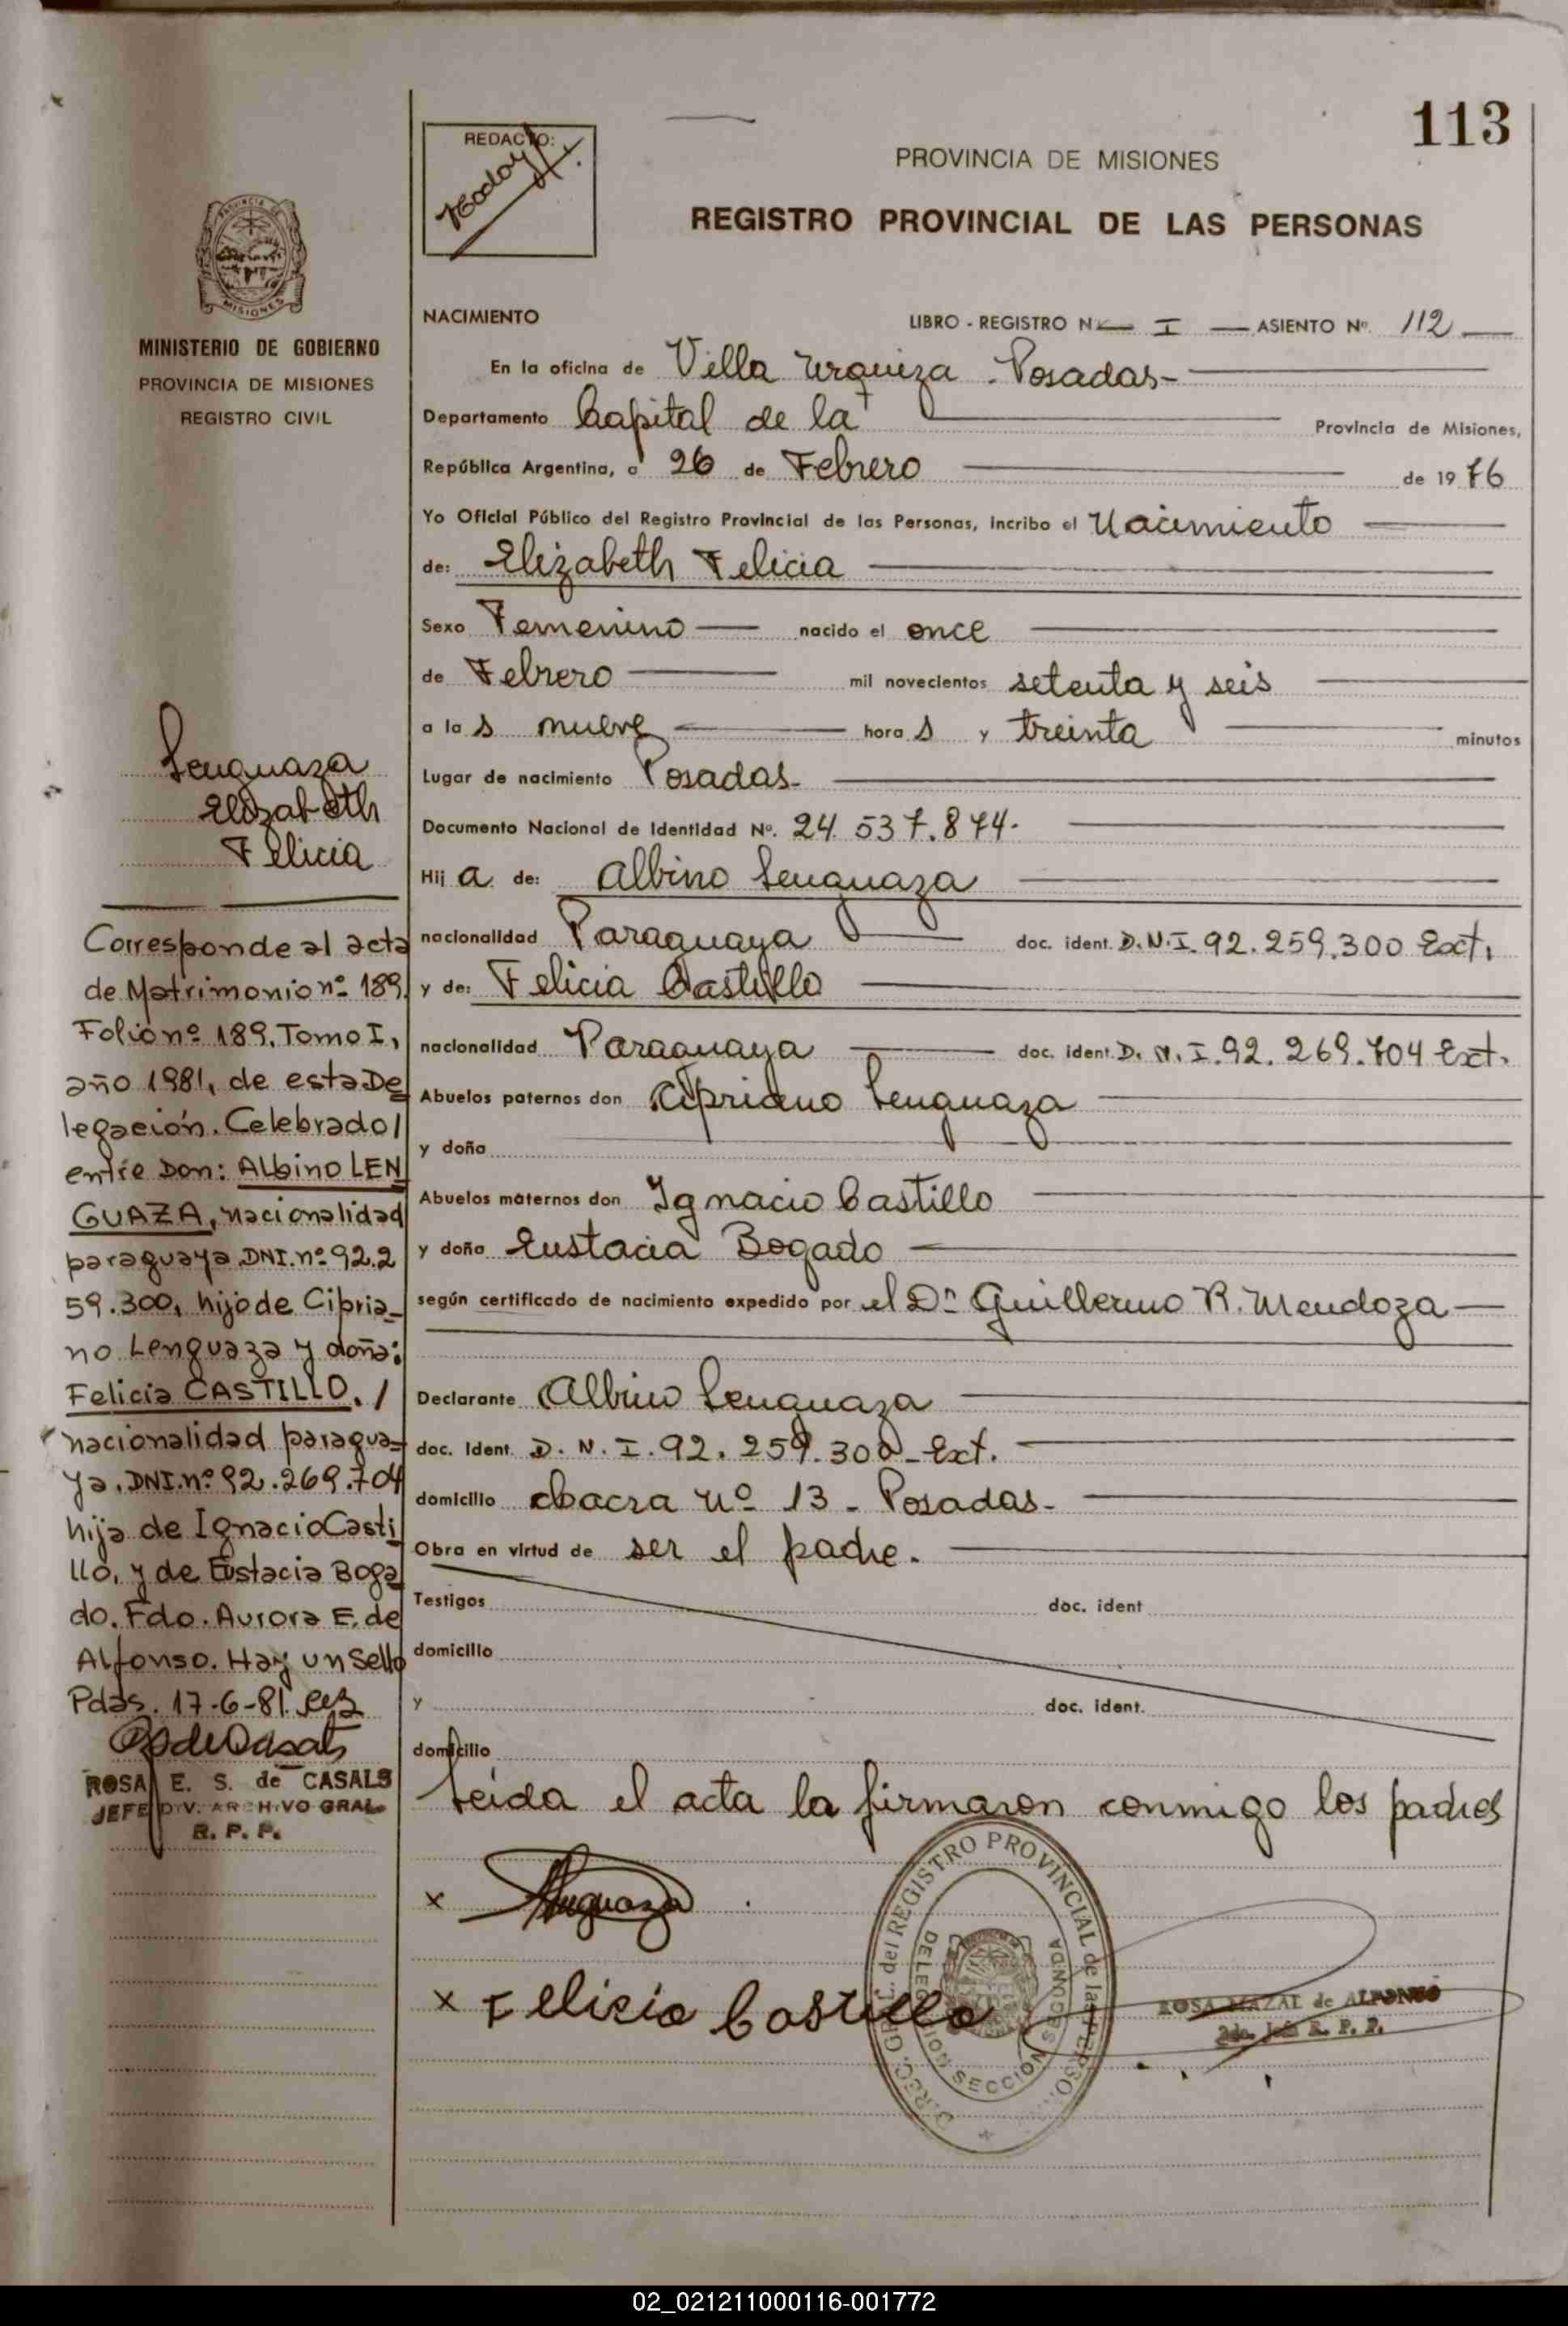 113
REDACTO:
PROVINCIA DE MISIONES
REGISTRO PROVINCIAL DE LAS PERSONAS
PROVINCIA DE
MISIONES
MINISTERIO DE GOBIERNO
PROVINCIA DE MISIONES
REGISTRO CIVIL
Lenguaza
Elizabeth
Felicia
Corresponde al acta
de Matrimonio nº 189.
Folio nº 189. Tomo I,
año 1981, de esta De
legación. Celebrado/
entre Don: Albino LEN
GUAZA, nacionalidad
paraguaya DNI. nº 92.2
59.300, hijo de Cipria-
no Lenguaza y doña:
Felicia CASTILLO. /
nacionalidad paragua-
ya. DNI. nº 92.269.704
hija de Ignacio Casti
llo, y de Eustacia Boga
do. Fdo. Aurora E. de
Alfonso. Hay un Sello
Pdas. 17-6-81.
ROSA E. S. de CASALS
JEFE DIV. ARCHIVO GRAL
R. P. P.
NACIMIENTO LIBRO - REGISTRO Nº I ASIENTO Nº. 112
En la oficina de Villa Urquiza - Posadas-
Departamento Capital de la Provincia de Misiones,
República Argentina, a 26 de Febrero de 19 76
Yo Oficial Público del Registro Provincial de las Personas, incribo el Nacimiento
de: Elizabeth Felicia
Sexo Femenino nacido el once
de Febrero mil novecientos setenta y seis
a la s nueve hora s y treinta minutos
Lugar de nacimiento Posadas-
Documento Nacional de Identidad Nº. 24.537.874.
Hij a de: Albino Lenguaza
nacionalidad Paraguaya doc. ident. D.N.I. 92.259.300 Ext.
y de: Felicia Castillo
nacionalidad Paraguaya doc. ident. D.N.I. 92.269.704 Ext.
Abuelos paternos don Cipriano Lenguaza
y doña
Abuelos maternos don Ignacio Castillo
y doña Eustacia Bogado
según certificado de nacimiento expedido por el Dr Guillermo R. Mendoza
Declarante Albino Lenguaza
doc. Ident. D.N.I. 92.259.300 - Ext.
domicilio chacra Nº 13 - Posadas-
Obra en virtud de ser el padre.
Testigos doc. ident
domicilio
y doc. ident.
domicilio
Leida el acta la firmaron conmigo los padres
x Lenguaza
x Felicia Castillo
DIREC. GRAL. del REGISTRO PROVINCIAL de las PERSO
DELEGACION SECCION SEGUNDA
ROSA MAZAL de ALFONSO
2do. Jefe R. P. P.
02_021211000116-001772